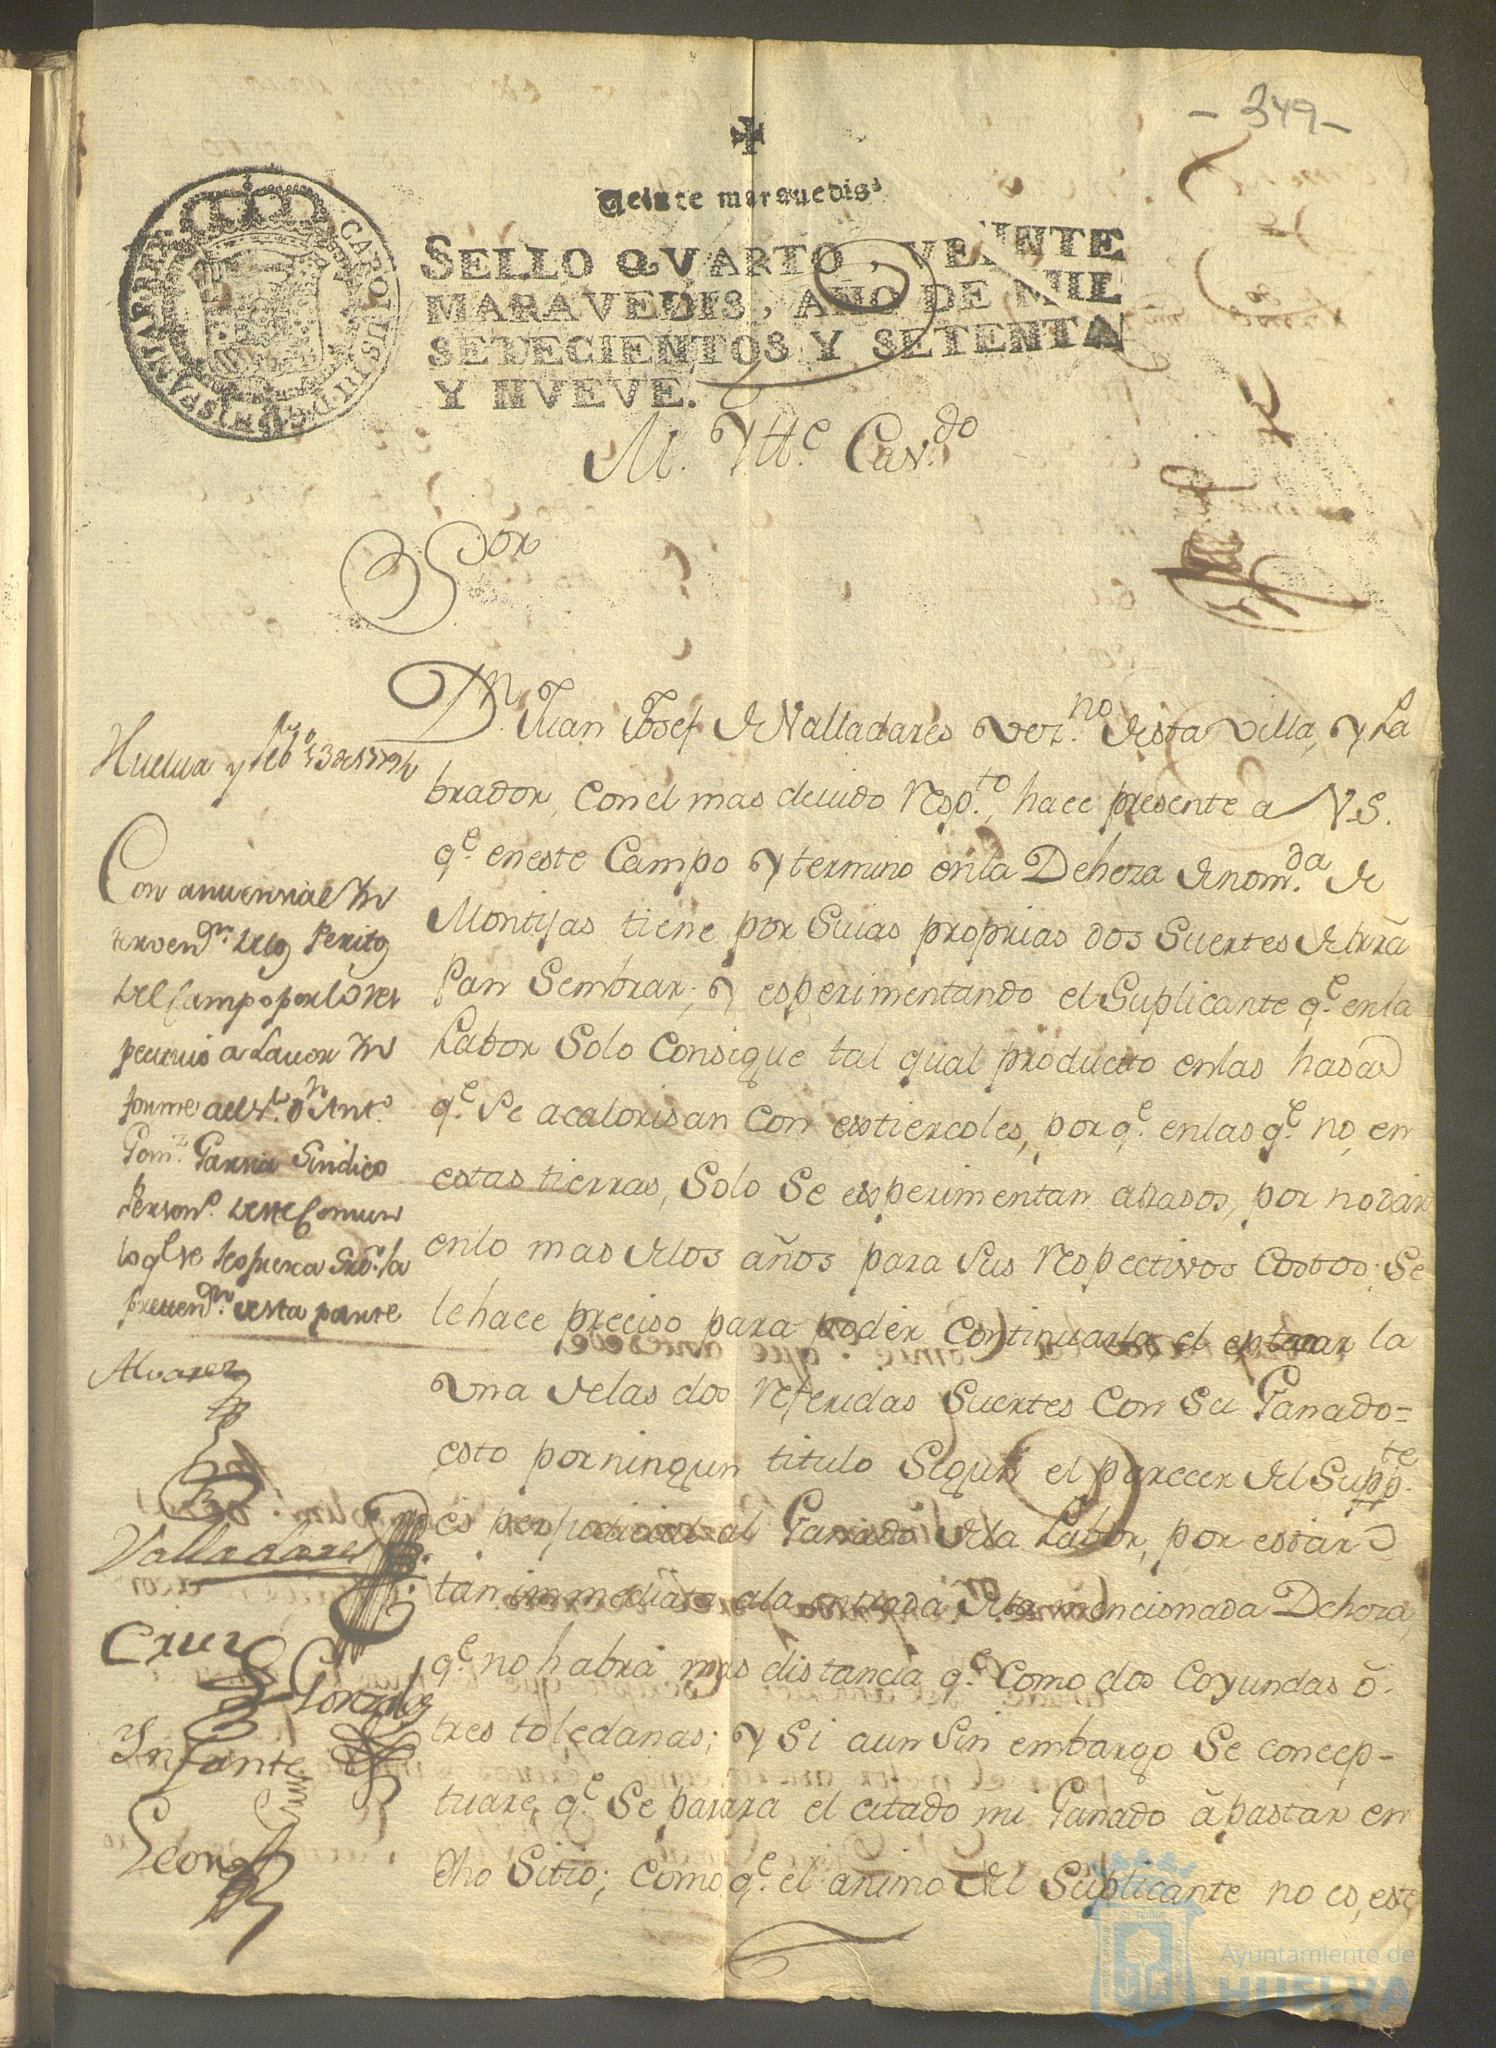 - 349 -
Veinte maravedis.
SELLO QVARTO, VEINTE
MARAVEDIS, AÑO DE MIL
SETECIENTOS Y SETENTA
Y NVEVE.
CAROLUS III D G HISPANIAR REX
M. Ytt.e Cav.do
S.or
D.n Juan Josef de Valladares vez.no desta villa, y La
brador, con el mas devido resp.to, hace presente a V.S.
q.e en este Campo y termino en la Deheza de nom.da de
Montijas tiene por suias proprias dos suertes de trrã
Pan Sembrar; y esperimentando el Suplicante q.e en la
Labor solo consigue tal qual producto en las hasas
q.e se acalorisan con estiercoles, por q.e en las q.e no, en
estas tierras, solo se esperimentan atrasos, por no dar
en lo mas de los años para sus respectivos costos; se
le hace preciso para poder continuarla, el entrar la
una de las dos referidas suertes con su Ganado=
esto por ningun titulo segun el parecer del Supp.te
es perjudicial al Ganado de la Labor, por estar
tan immediata a la entrada de la mencionada Deheza,
q.e no habrá mas distancia q.e como dos coyundas ó
tres toledanas; y si aun sin embargo se concep-
tuare, q.e se parara el citado mi Ganado á pastar en
dho Sitio; como q.e el animo del Suplicante no es, este
Huelva y feb.o 13 de 1779
Con anuencia e In
terven.on de los Peritos
del Campo por lo res
pectivo a Lavor In
forme a el S.r D.n Ant.o
Gom.z Garcia Sindico
Person.o deste Comun
lo q.e se le ofresca sre. la
preten.on desta parte
Alvarez
Valladares
Cruz
Gonzales
Infante
Leon
Ayuntamiento de
HUELVA